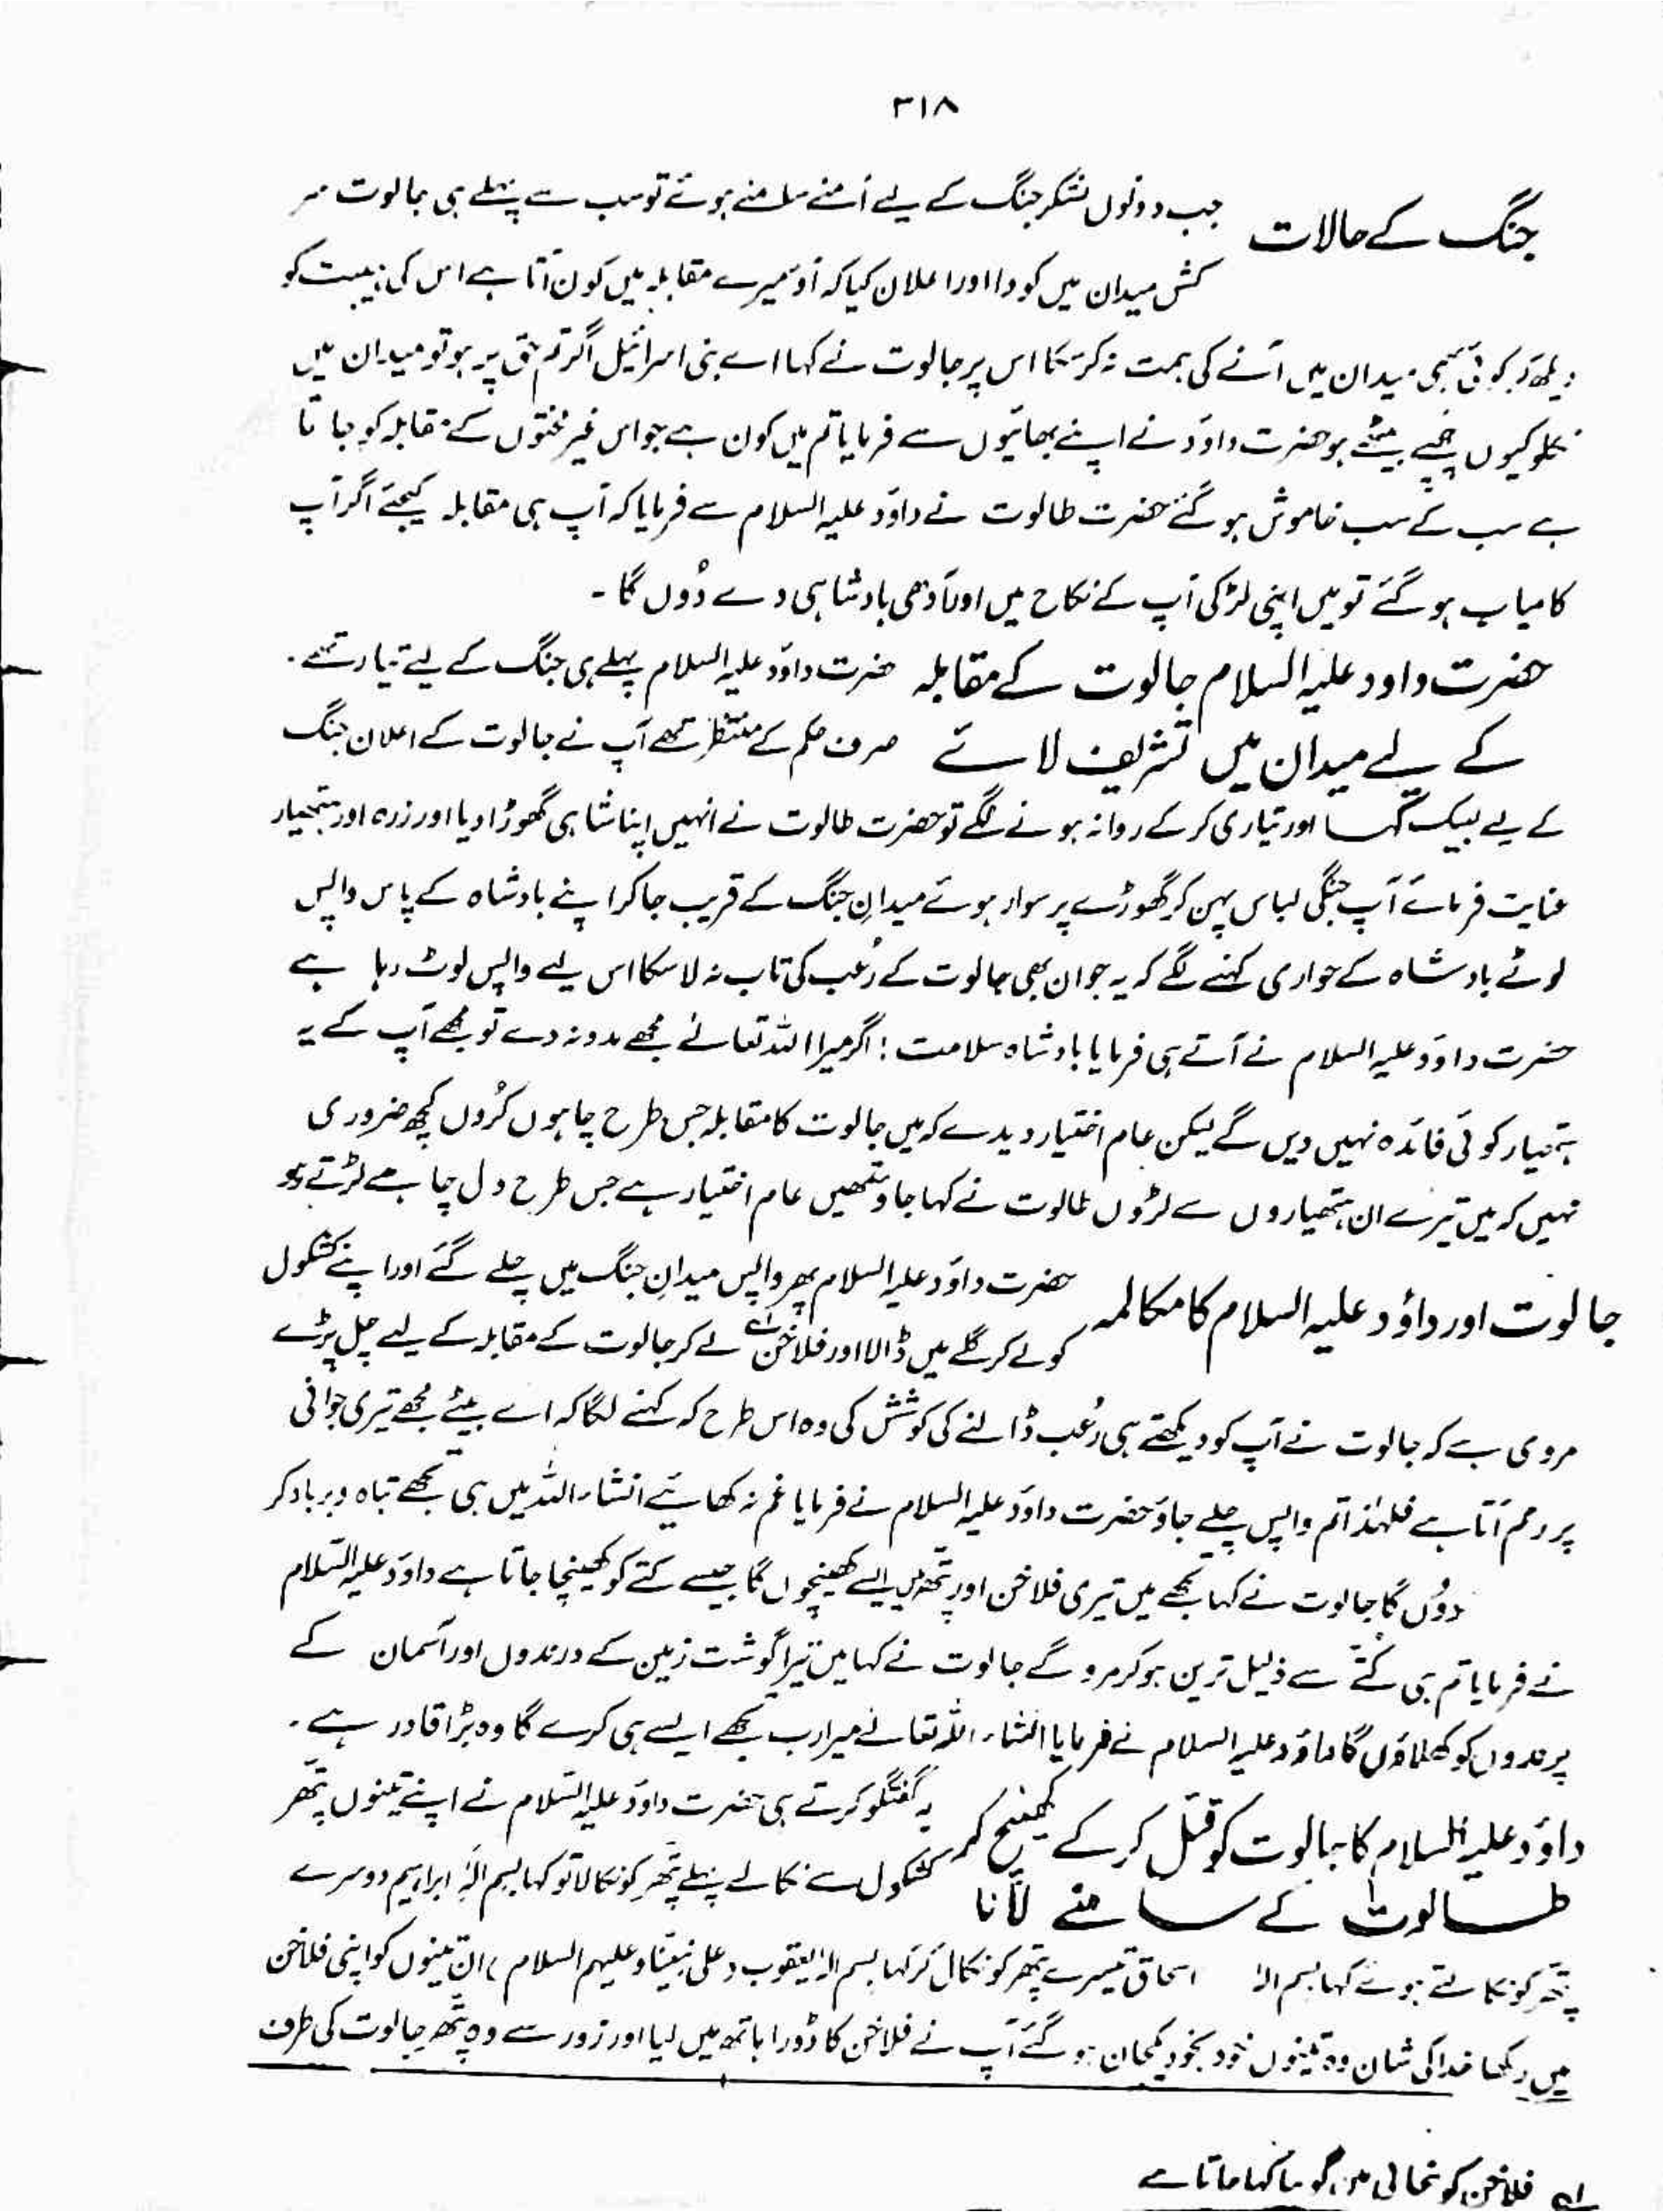 ۳۱۸
جنگ کے حالات
جب دونوں لشکر جنگ کے لیے آمنے سامنے ہوئے تو سب سے پہلے ہی جالوت سر
کش میدان میں کودا اور اعلان کیا کہ آؤ میرے مقابلہ میں کون آتا ہے اس کی ہیبت کو
دیکھ کر کوئی بھی میدان میں آنے کی ہمت نہ کر سکا اس پر جالوت نے کہا اے بنی اسرائیل اگر تم حق پر ہو تو میدان میں
نکلو کیوں چھپے بیٹھے ہو حضرت داوٗد نے اپنے بھائیوں سے فرمایا تم میں کون ہے جو اس غیر مختوں کے مقابلہ کو جاتا
ہے سب کے سب خاموش ہو گئے حضرت طالوت نے داوٗد علیہ السلام سے فرمایا کہ آپ ہی مقابلہ کیجئے اگر آپ
کامیاب ہو گئے تو میں اپنی لڑکی آپ کے نکاح میں اور آدھی بادشاہی دے دُوں گا ۔
حضرت داود علیہ السلام جالوت کے مقابلہ
کے لیے میدان میں تشریف لائے
حضرت داوٗد علیہ السلام پہلے ہی جنگ کے لیے تیار تھے ۔
صرف حکم کے منتظر تھے آپ نے جالوت کے اعلان جنگ
کے لیے لبیک کہا اور تیاری کر کے روانہ ہونے لگے تو حضرت طالوت نے انہیں اپنا شاہی گھوڑا دیا اور زرہ اور ہتھیار
عنایت فرمائے آپ جنگی لباس پہن کر گھوڑے پر سوار ہوئے میدانِ جنگ کے قریب جا کر اپنے بادشاہ کے پاس واپس
لوٹے بادشاہ کے حواری کہنے لگے کہ یہ جوان بھی جالوت کے رُعب کی تاب نہ لا سکا اس لیے واپس لوٹ رہا ہے
حضرت داوٗد علیہ السلام نے آتے ہی فرمایا بادشاہ سلامت ! اگر میرا اللہ تعالےٰ مجھے مدد نہ دے تو مجھے آپ کے یہ
ہتھیار کوئی فائدہ نہیں دیں گے لیکن عام اختیار دیدے کہ میں جالوت کا مقابلہ جس طرح چاہوں کرُوں کچھ ضروری
نہیں کہ میں تیرے ان ہتھیاروں سے لڑوں طالوت نے کہا جاؤ تمھیں عام اختیار ہے جس طرح دل چاہے لڑتے رہو
جالوت اور داؤد علیہ السلام کا مکالمہ
حضرت داوٗد علیہ السلام پھر واپس میدانِ جنگ میں چلے گئے اور اپنے کشکول
کو لے کر گلے میں ڈالا اور فلاخن لے لے کر جالوت کے مقابلہ کے لیے چل پڑے
مروی ہے کہ جالوت نے آپ کو دیکھتے ہی رُعب ڈالنے کی کوشش کی وہ اس طرح کہ کہنے لگا کہ اے بیٹے مجھے تیری جوانی
پر رحم آتا ہے فلہٰذا تم واپس چلے جاؤ حضرت داوٗد علیہ السلام نے فرمایا غم نہ کھائیے انشاء اللہ میں ہی تجھے تباہ و برباد کر
دوُں گا جالوت نے کہا تجھے میں تیری فلاخن اور پتھر میں ایسے کھینچوں گا جیسے کتے کو کھینچا جاتا ہے داوٗد علیہ السّلام
نے فرمایا تم ہی کُتے سے ذلیل ترین ہو کر مرو گے جالوت نے کہا میں تیرا گوشت زمین کے درندوں اور آسمان کے
پرندوں کو کھلاؤں گا داوٗد علیہ السلام نے فرمایا انشاء اللہ تعالےٰ میرا رب تجھے ایسے ہی کرے گا وہ بڑا قادر ہے ۔
داوٗد علیہ السلام کا جالوت کو قتل کر کے کھینچ کر
طالوت کے سامنے لانا
یہ گفتگو کرتے ہی حضرت داوٗد علیہ السّلام نے اپنے تینوں پتّھر
کشکول سے نکالے پہلے پتّھر کو نکالا تو کہا بسم الٰہِ ابراہیم دوسرے
پتّھر کو نکالتے ہوئے کہا بسم الٰہ اسحاق تیسرے پتھر کو نکال کر کہا بسم الٰہ یعقوب (علیٰ نبیّنا وعلیہم السلام) ان تینوں کو اپنی فلاخن
میں رکھا خدا کی شان وہ تینوں خود بخود یکجان ہو گئے آپ نے فلاخن کا ڈورا ہاتھ میں لیا اور زور سے وہ پتّھر جالوت کی طرف
لے فلاخن کو پنجابی میں کہا جاتا ہے